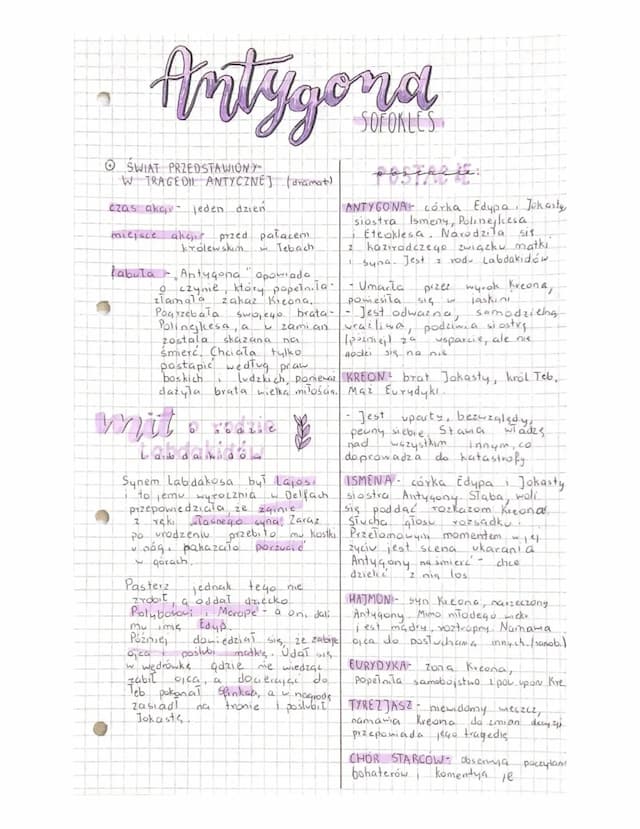 Antygona
SOFOKLES
ŚWIAT PRZEDSTAWIONY
W TRAGEDII ANTYCZNEJ (dramat)
czas akcji - jeden dzień
miejsce akcji - przed pałacem
królewskim w Tebach
fabuła - "Antygona" opowiada
o czynie, który popełniła -
złamała zakaz Kreona.
Pogrzebała swojego brata -
Polinejkesa, a w zamian
została skazana na
śmierć. Chciała tylko
postąpić według praw
boskich i ludzkich, ponieważ
dażyła brata wielką miłością.
mit o rodzie
Labdakidów
Synem Labdakosa był Lajos
i to jemu wyrocznia w Delfach
przepowiedziała, że zginie
z ręki własnego syna. Zaraz
po urodzeniu przebito mu kostki
u nóg i pokazało porzucić
w górach.
Pasterz jednak tego nie
zrobił, a oddał dziecko
Polybosowi i Meropé - a oni dali
mu imię Edyp.
Później dowiedział się, że zabije
ojca i poślubi matkę. Udał się
w wędrówkę gdzie nie wiedząc
zabił ojca, a docierając do
Teb pokonał Sfinksa, a w nagrodę
zasiadł na tronie i poślubił
Jokastę.
POSTACIE:
ANTYGONA - córka Edypa i Jokasty
siostra Ismeny, Polinejkesa
i Eteoklesa. Narodziła się
z kazirodczego związku matki
i syna. Jest z rodu Labdakidów
- Umarła przez wyrok Kreona,
powiesiła się w jaskini
- Jest odważna, samodzielna
wrażliwa, podziwia siostrę
(później) za wsparcie, ale nie
godzi się na nie
KREON - brat Jokasty, król Teb,
Mąż Eurydyki.
- Jest uparty, bezwzględny,
pewny siebie. Stawia władzę
nad wszystkim innym, co
doprowadza do katastrofy.
ISMENA - córka Edypa i Jokasty
siostra Antygony. Słaba, woli
się poddać rozkazom Kreona.
Słucha głosu rozsądku.
Przełomowym momentem w jej
życiu jest scena ukarania
Antygony na śmierć - chce
dzielić z nią los
HAJMON - syn Kreona, narzeczony
Antygony. Mimo młodego wieku
jest mądry, roztropny. Namawia
ojca do posłuchania innych. (samob.)
EURYDYKA - żona Kreona,
Popełnia samobójstwo
TYREZJASZ - niewidomy wieszcz,
namawia Kreona do zmian decyzji
przepowiada jego tragedię
CHÓR STARCÓW - obserwują poczynania
bohaterów i komentują je